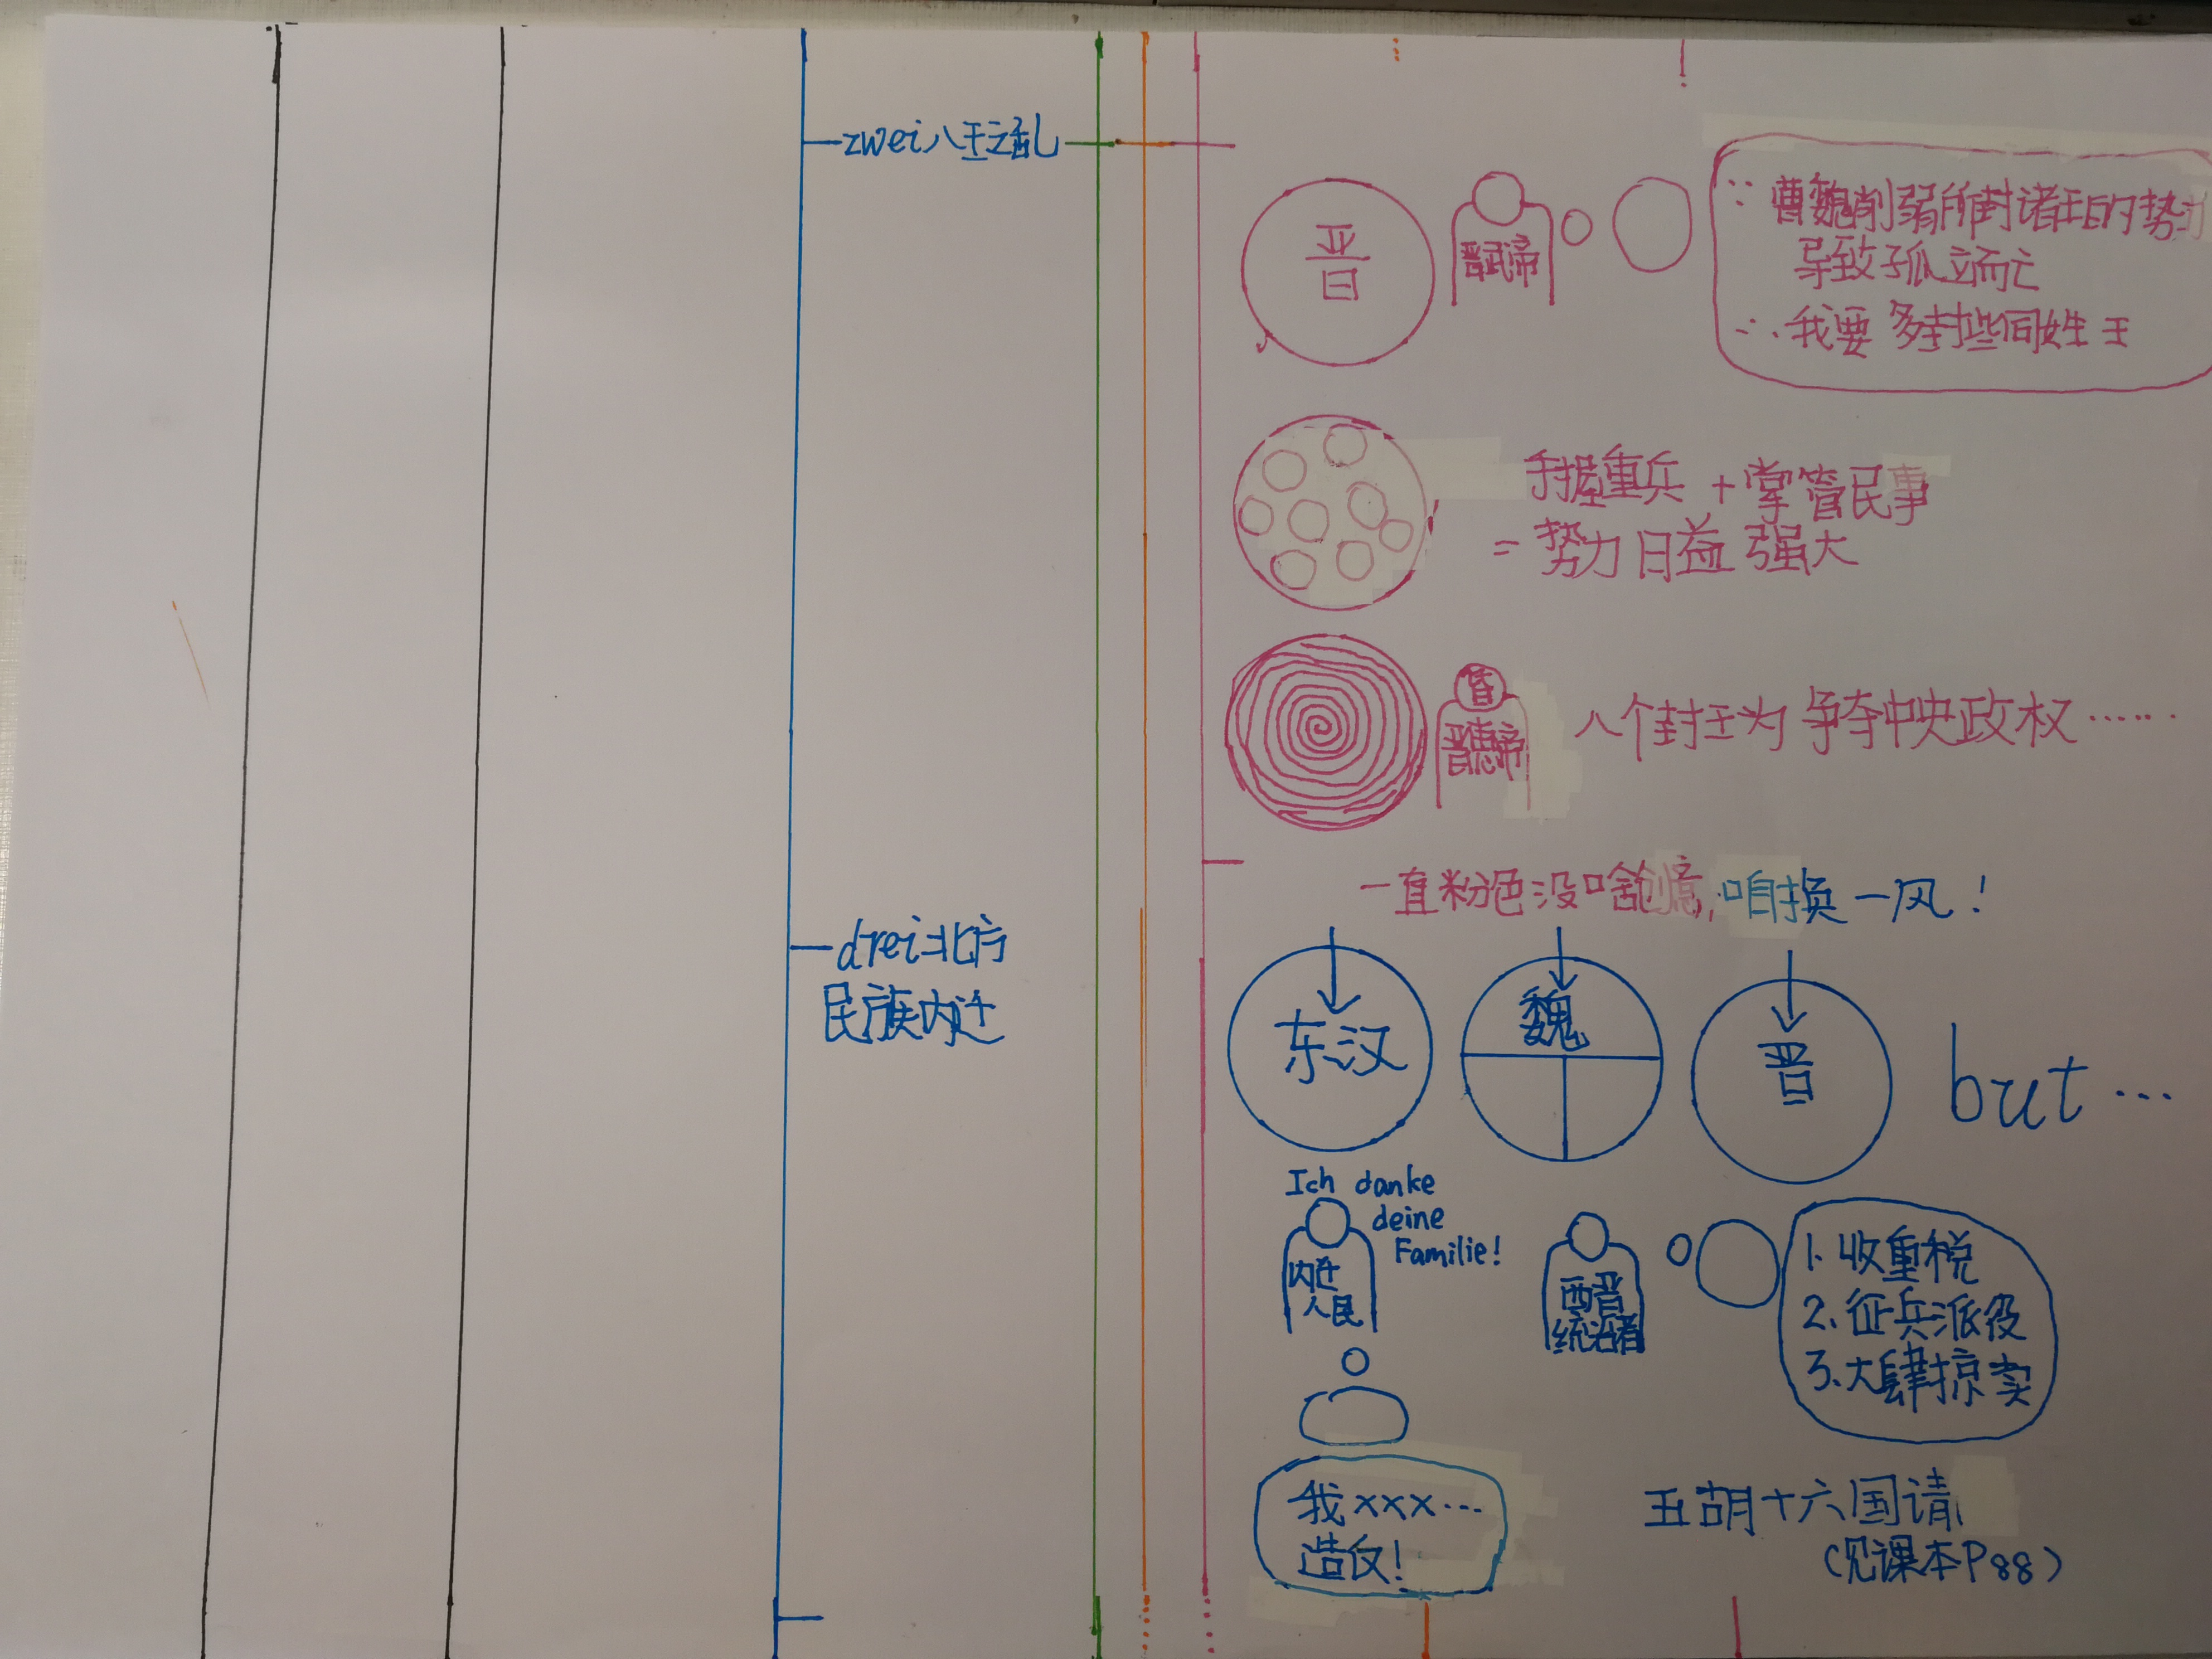 zwei八王之乱
晋
晋武帝
∵曹魏削弱所封诸王的势力
导致孤立而亡
∴我要多封些同姓王
手握重兵+掌管民事
=势力日益强大
昏
晋惠帝
八个封王为争夺中央政权……
一直粉色没啥创意,咱换一风!
drei北方
民族内迁
东汉
魏
晋
but…
Ich danke
deine
Familie!
内迁
人民
西晋
统治者
1.收重税
2.征兵派役
3.大肆掠卖
我xxx…
造反!
五胡十六国请
(见课本P88)